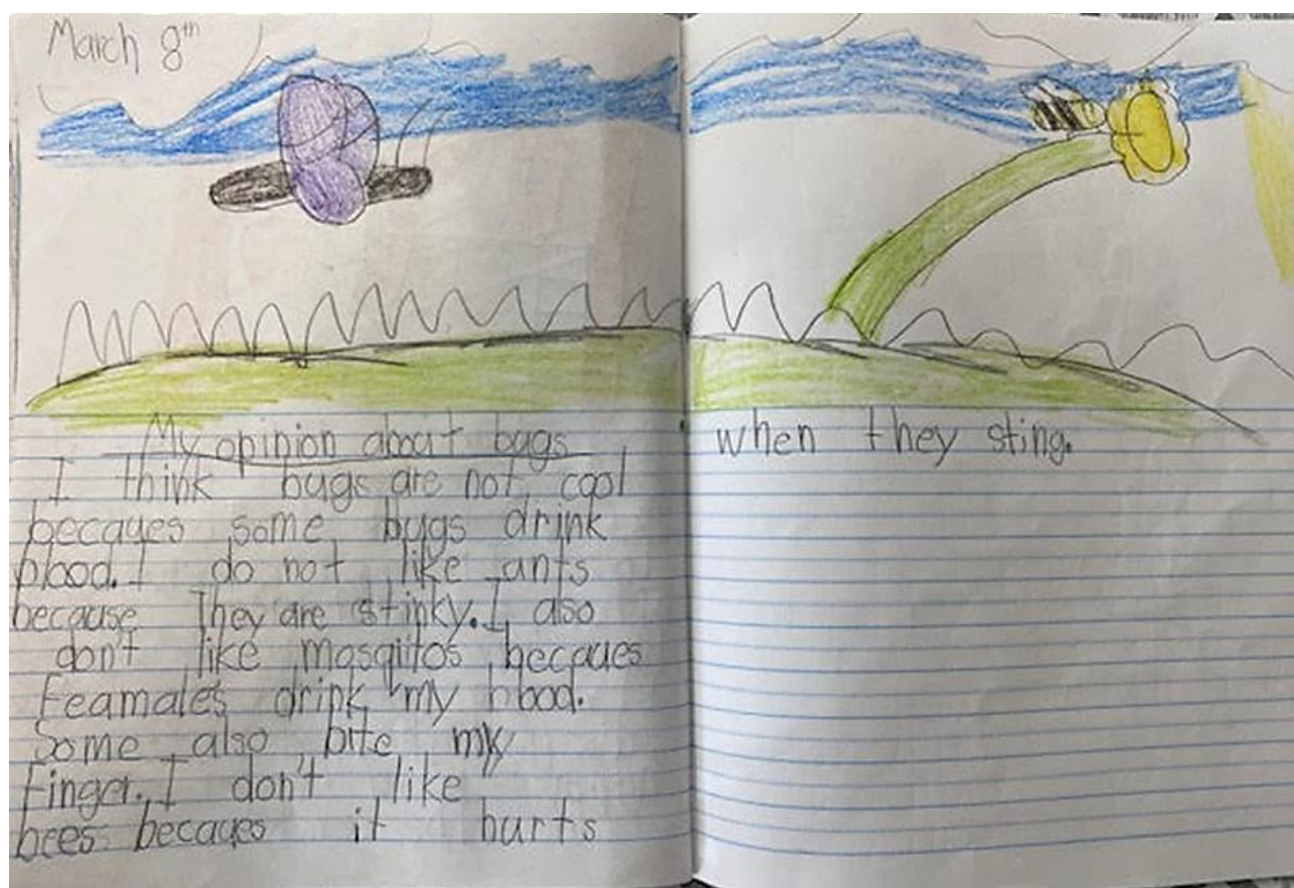 March 8th
My opinion about bugs
I think bugs are not cool
becaues some bugs drink
blood. I do not like ants
because They are stinky. I also
don't like mosqiitos becaues
Feamales drink my blood.
Some also bite my
Finger. I don't like
bees becaues it hurts
when they sting.